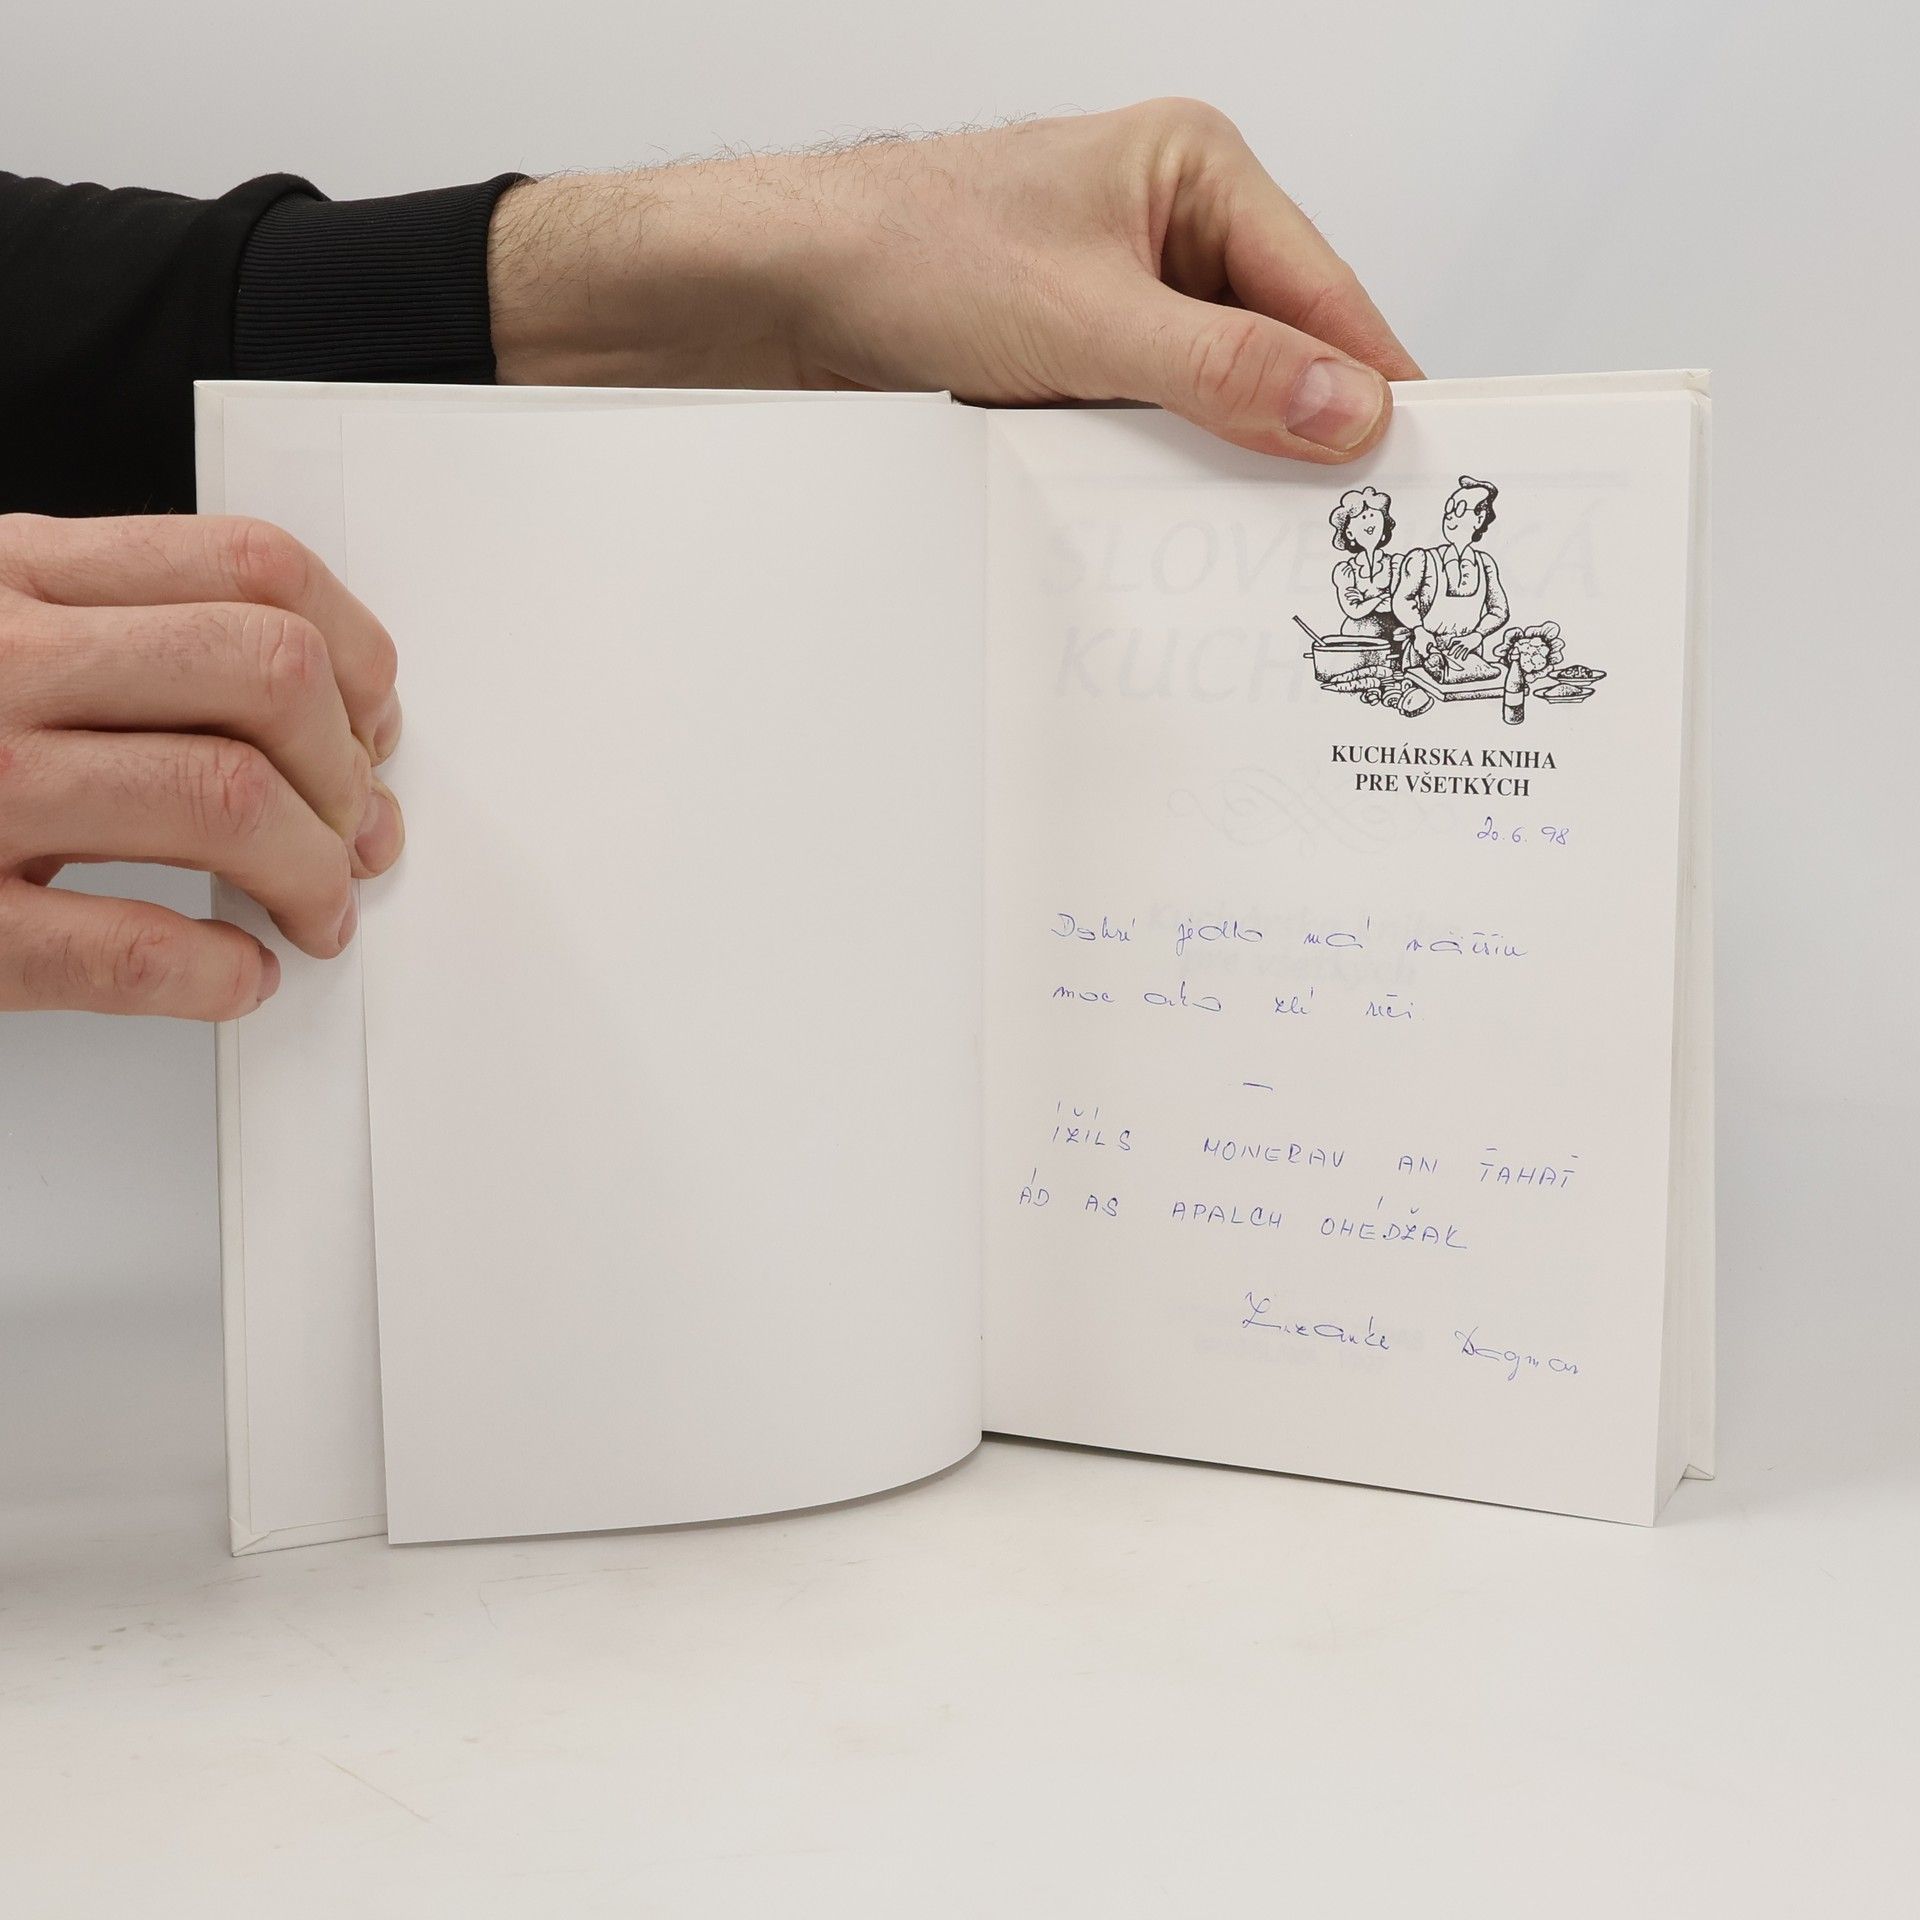 KUCHÁRSKA KNIHA
PRE VŠETKÝCH
20. 6. 98
Dobré jedlo má väčšiu
moc ako zlé reči
—
ÍŽÍLS MONERAV AN ŤAHAŤ
ÁD AS APALCH OHÉDŽAK
Zuzanke Dagmar